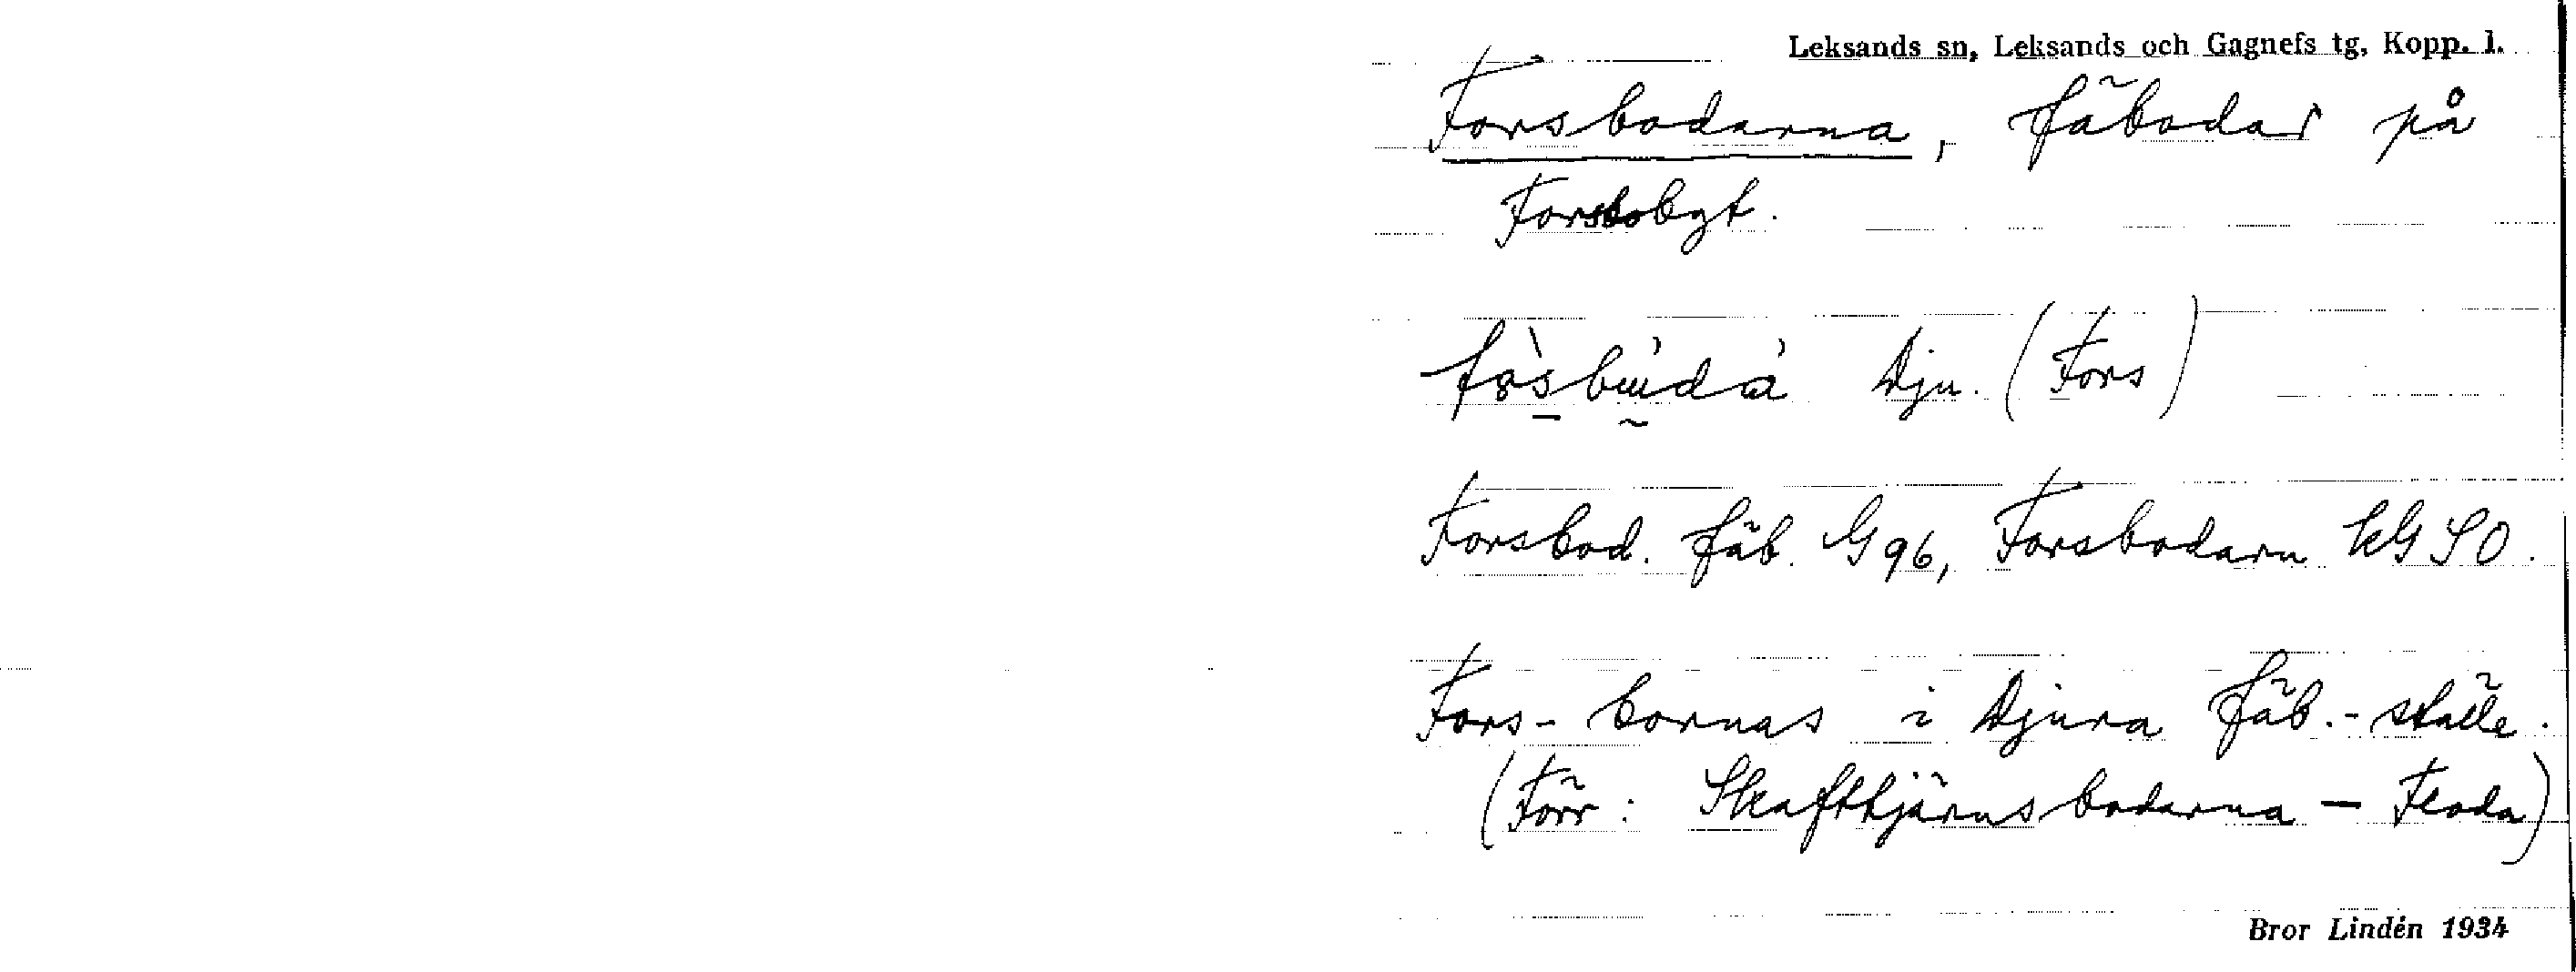 Leksands sn, Leksands och Gagnefs tg, Kopp. l.
Forsbodarna, fäbodar på
Forsbobyt.
Dju. (Fors)
Forsbod. fäb. G96, Forsbodarn KG SO.
Fors-bornas i Djura fäb.-ställe.
(Förr: Skafttjärnsbodarna — Floda)
Bror Lindén 1934